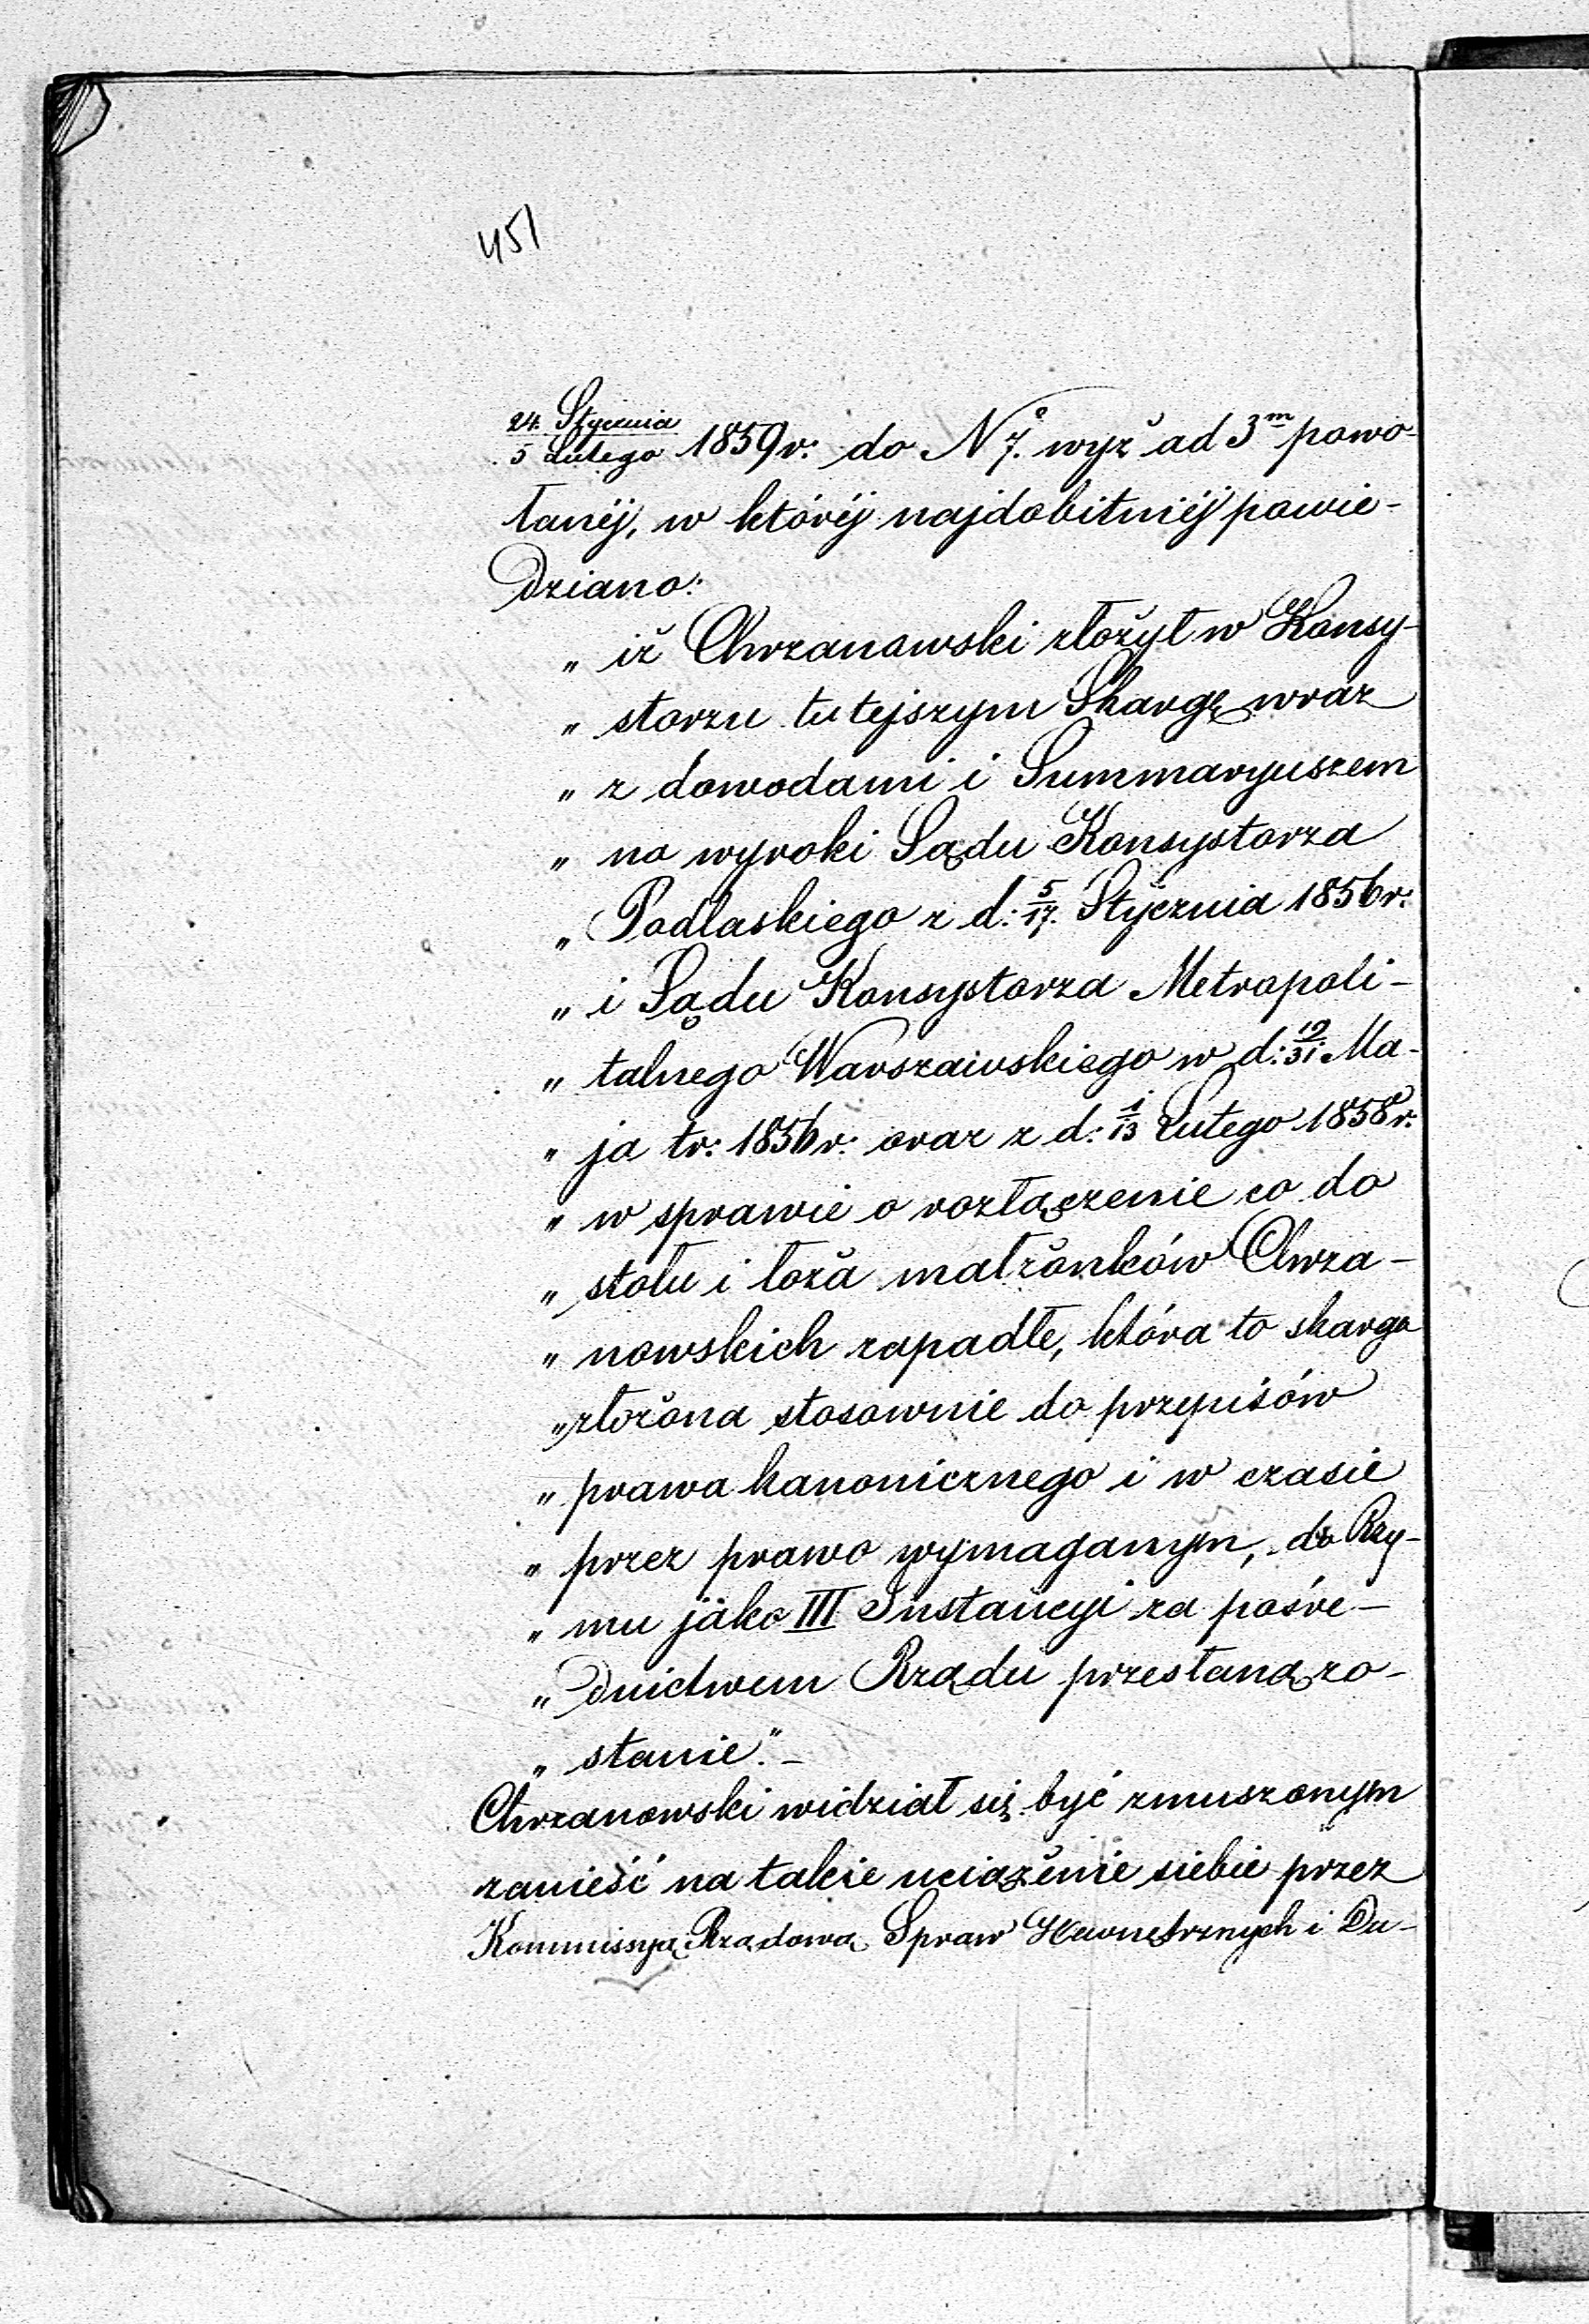 451
24. Stycznia
5 Lutego 1859 r: do N° 7. wyż ad 3m powo-
łanéj, w któréj najdobitniéj powie-
dziano:
„ iż Chrzanowski złożył w Konsy-
„ storzu tutejszym Skargę wraz
„ z dowodami i Summaryuszem
„ na wyroki Sądu Konsystorza
„ Podlaskiego z d: 5/17. Stycznia 1856 r:
„ i Sądu Konsystorza Metropoli-
„ talnego Warszawskiego w d: 19/31. Ma-
„ ja tr: 1856 r: oraz z d: 1/13 Lutego 1858 r:
„ w sprawie o rozłączenie co do
„ stołu i łoża małżonków Chrza-
„ nowskich zapadłe, która to skarga
„ złożona stosownie do przepisów
„ prawa kanonicznego i w czasie
„ przez prawo wymaganym, do Rzy-
„ mu jako III Instancyi za pośre-
„ dnictwem Rządu przesłaną zo-
„ stanie." -
Chrzanowski widział się być zmuszonym
zanieść na takie uciążenie siebie przez
Kommissyą Rządową Spraw Wewnętrznych i Du-